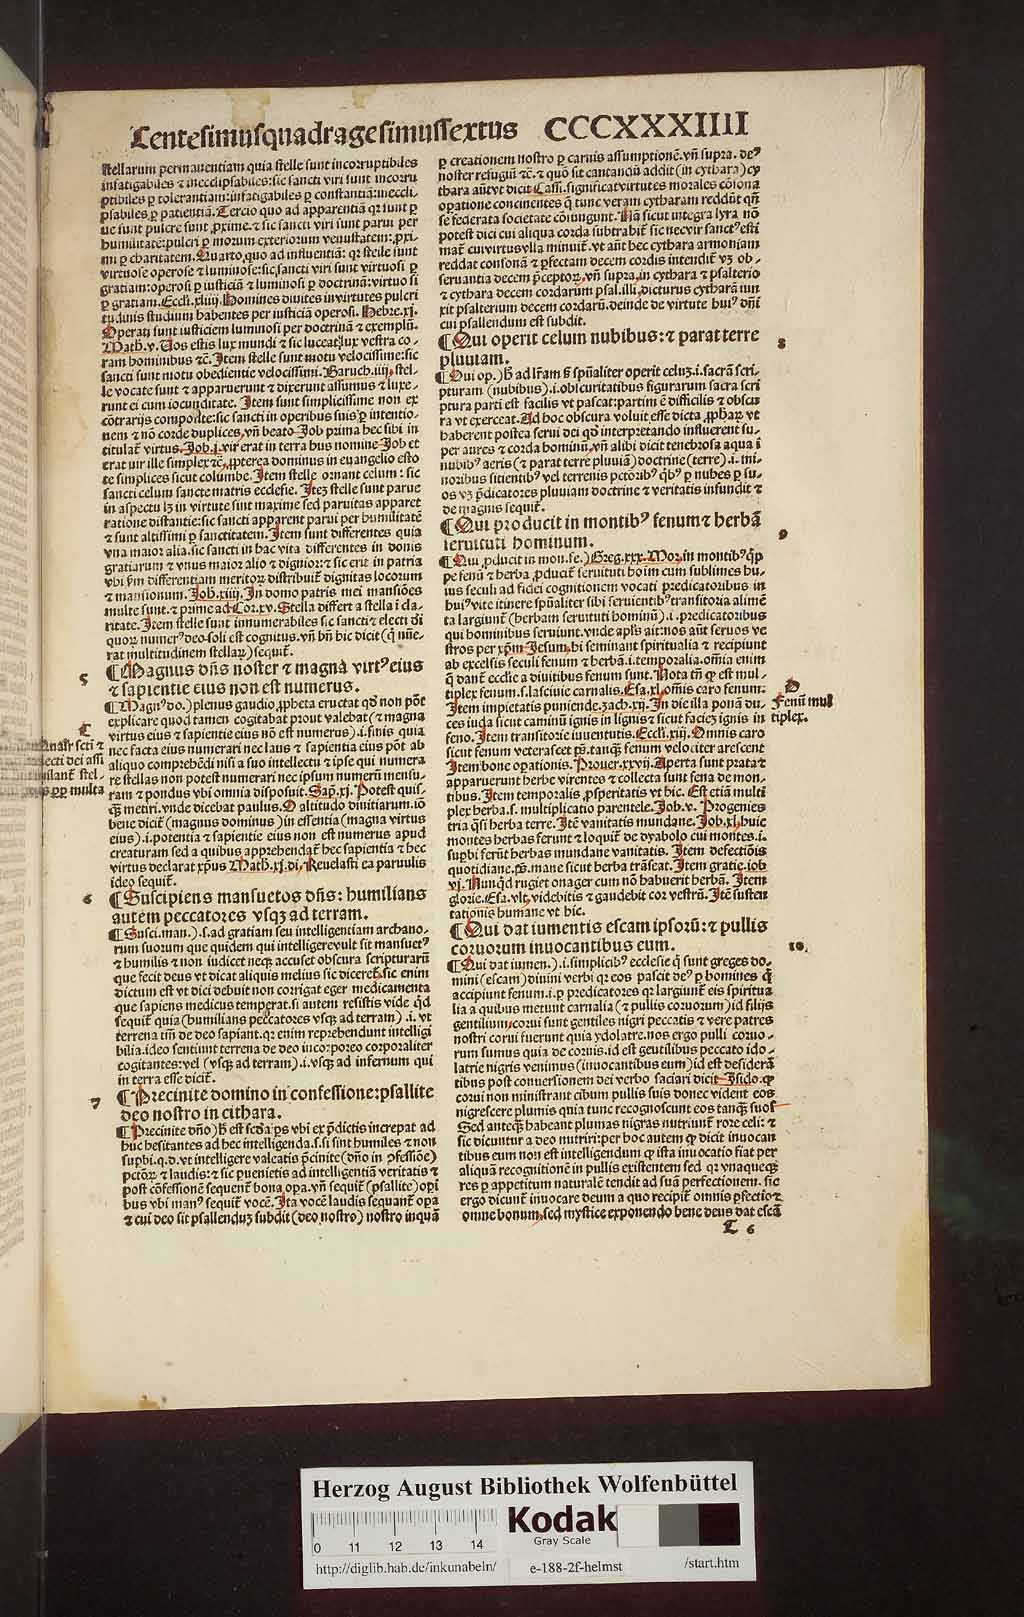 Centesimusquadragesimussextus CCCXXXIIII
stellarum permanentiam quia stelle sunt incorruptibiles
infatigabiles ⁊ ineclipsabiles: sic sancti viri sunt incorru
ptibiles ꝑ tolerantiam: infatigabiles ꝑ constantiã: inecli-
psabiles ꝑ patientiã. Tercio quo ad apparentiã qꝛ sunt ꝑ
ue sunt pulcre sunt ꝓxime. ⁊ sic sancti viri sunt parui per
humilitatẽ: pulcri ꝑ morum exteriorum venustatem: ꝓxi-
mi ꝑ charitatem. Quarto quo ad influentiã: qꝛ stelle sunt
virtuose operose ⁊ luminose: sic sancti viri sunt virtuosi ꝑ
gratiam: operosi ꝑ iusticiã ⁊ luminosi ꝑ doctrinã: virtuosi
ꝑ gratiam. Eccli. xliiij. Homines diuites in virtutes pulcri
tudinis studium habentes per iusticiã operosi. Hebre. xj.
Operati sunt iusticiem luminosi per doctrinã ⁊ exemplũ.
Math. v. Uos estis lux mundi ⁊ sic luceat lux vestra co-
ram hominibus ⁊c̃. Item stelle sunt motu velocissime: sic
sancti sunt motu obedientie velocissimi. Baruch. iiij. stel-
le vocate sunt ⁊ apparuerunt ⁊ dixerunt assumus ⁊ luxe-
runt ei cum iocunditate. Item sunt simplicissime non ex
cõtrarijs composite: sic sancti in operibus suis ꝑ intentio-
nem ⁊ nõ corde duplices, vñ beato Job prima hec sibi in
titulat̃ virtus. Job. j. vir erat in terra hus nomine Job et
erat uir ille simplex ⁊c̃. ꝓpterea dominus in euangelio esto
te simplices sicut columbe. Item stelle ornant celum: sic
sancti celum sancte matris ecclesie. Iteꝫ stelle sunt parue
in aspectu lꝫ in virtute sunt maxime sed paruitas apparet
ratione distantie: sic sancti apparent parui per humilitatẽ
⁊ sunt altissimi ꝑ sanctitatem. Item sunt differentes quia
vna maior alia. sic sancti in hac vita differentes in donis
gratiarum ⁊ vnus maior alio ⁊ dignior: ⁊ sic erit in patria
vbi ẜm differentiam meritoꝝ distribuit̃ dignitas locorum
⁊ mansionum. Joh. xiiij. In domo patris mei mansiões
multe sunt. ⁊ prime ad Cor. xv. Stella differt a stella ĩ cla-
ritate. Item stelle sunt innumerabiles sic sancti ⁊ electi dĩ
quoꝝ numer⁹ deo soli est cognitus. vñ bñ hic dicit (q̃ nũe-
rat multitudinem stellaꝝ) sequit̃.
¶ Magnus dñs noster ⁊ magna virt⁹ eius
⁊ sapientie eius non est numerus. 5
¶ Magn⁹ do.) plenus gaudio ꝓpheta eructat qđ non põt
explicare quod tamen cogitabat prout valebat (⁊ magna
virtus eius ⁊ sapientie eius nõ est numerus) .i. finis quia
nec facta eius numerari nec laus ⁊ sapientia eius põt ab
aliquo comprehẽdi nisi a suo intellectu ⁊ ipse qui numera
re stellas non potest numerari nec ipsum numerũ mensu-
ram ⁊ pondus vbi omnia disposuit. Sap. xj. Potest quis-
q̃ꝫ metiri. vnde dicebat paulus. O altitudo diuitiarum. iõ
bene dicit̃ (magnus dominus) in essentia (magna virtus
eius) .i. potentia ⁊ sapientie eius non est numerus apud
creaturam sed a quibus apprehendat̃ hec sapientia ⁊ hec
virtus declarat xp̃us Math. xj. di. Reuelasti ea paruulis
ideo sequit̃.
¶ Suscipiens mansuetos dñs: humilians
autem peccatores vsqꝫ ad terram. 6
¶ Susci. man.) .s. ad gratiam seu intelligentiam archano-
rum suorum que quidem qui intelligere vult sit mansuet⁹
⁊ humilis ⁊ non iudicet neqꝫ accuset obscura scripturarũ
que fecit deus vt dicat aliquis melius sic diceret̃, sic enim
dictum est vt dici debuit non corrigat eger medicamenta
que sapiens medicus temperat. si autem resistis vide q̇d
sequit̃ quia (humilians peccatores vsqꝫ ad terram) .i. vt
terrena tm̃ de deo sapiant. qꝛ enim reprehendunt intelligi
bilia. ideo sentiunt terrena de deo incorporeo corporaliter
cogitantes: vel (vsqꝫ ad terram) .i. vsqꝫ ad infernum qui
in terra esse dicit̃.
¶ Precinite domino in confessione: psallite
deo nostro in cithara. 7
¶ Precinite dño) h̃ est scđa ps vbi ex p̃dictis increpat ad
huc hesitantes ad hec intelligenda. s. si sint humiles ⁊ non
supbi. q. d. vt intelligere valeatis p̃cinite (dño in ꝯfessiõe)
pctõꝝ ⁊ laudis: ⁊ sic puenietis ad intelligentiã veritatis ⁊
post cõfessionẽ sequent̃ bona oꝑa. vñ sequit̃ (psallite) oꝑi
bus vbi man⁹ sequit̃ vocẽ. Ita vocẽ laudis sequant̃ oꝑa
⁊ cui deo sit psallenduꝫ subdit (deo nostro) nostro inquã
C
nasr scti ⁊
ecti dei assi
milant̃ stel-
ꝓp multa
ꝑ creationem nostro ꝑ carnis assumptionẽ. vñ supra. de⁹
noster refugiũ ⁊c̃. ⁊ quõ sit cantandũ addit (in cythara) cy
thara aũt vt dicit Cassi. significat virtutes morales cõsona
oꝑatione concinentes q̃ tunc veram cytharam reddũt qñ
se federata societate cõiungunt. Nã sicut integra lyra nõ
potest dici cui aliqua corda subtrahit̃ sic nec vir sanct⁹ esti
mat̃ cui virtus vlla minuit̃. vt aũt hec cythara armoniam
reddat consonã ⁊ ꝑfectam decem cordis intendit̃ vꝫ ob-
seruantia decem p̃ceptoꝝ, vñ supra, in cythara ⁊ psalterio
⁊ cythara decem cordarum psal. illi, dicturus cytharã iun
xit psalterium decem cordarũ. deinde de virtute hui⁹ dñi
cui psallendum est subdit.
¶ Qui operit celum nubibus: ⁊ parat terre
pluuiam. 8
¶ Qui op.) h̃ ad lr̃am ß spũaliter operit celuꝫ .i. sacrã scri-
pturam (nubibus) .i. obscuritatibus figurarum sacra scri
ptura parti est facilis vt pascat: partim ẽ difficilis ⁊ obscu
ra vt exerceat. Ad hoc obscura voluit esse dicta ꝓph̃aꝝ vt
haberent postea serui dei qđ interpretando influerent su-
per aures ⁊ corda hominũ, vñ alibi dicit tenebrosa aqua ĩ
nubib⁹ aeris (⁊ parat terre pluuiã) doctrine (terre) .i. mi-
noribus sitientib⁹ vel terrenis pctõrib⁹ q̃b⁹ ꝑ nubes ꝑ su-
os vꝫ p̃dicatores pluuiam doctrine ⁊ veritatis infundit ⁊
de magnis sequit̃.
¶ Qui producit in montib⁹ fenum ⁊ herbã
seruituti hominum. 9
¶ Qui ꝓducit in mon. fe.) Greg. xxx. Mor. in montib⁹ q̃ꝑ
pe fenũ ⁊ herba ꝓducit̃ seruituti hoĩm cum sublimes hu-
ius seculi ad fidei cognitionem vocati predicatoribus in
hui⁹ vite itinere spũaliter sibi seruientib⁹ transitoria alimẽ
ta largiunt̃ (herbam seruituti hominũ) .i. predicatoribus
qui hominibus seruiunt. vnde apl̃s ait: nos aũt seruos ve
stros per xp̃m Jesum, hi seminant spiritualia ⁊ recipiunt
ab excelsis seculi fenum ⁊ herbã .i. temporalia. om̃ia enim
q̃ dant̃ eccl̃ie a diuitibus fenum sunt. Nota tñ ꝙ est mul-
tiplex fenum. s. lasciuie carnalis. Esa. xl. om̃is caro fenum.
Item impietatis puniende. zach. xij. In die illa ponã du-
ces iuda sicut caminũ ignis in lignis ⁊ sicut facieꝫ ignis in
feno. Item transitorie iuuentutis. Eccli. xiij. Omnis caro
sicut fenum veterascet p̃s. tanq̃ꝫ fenum velociter arescent
Item bone oꝑationis. Prouer. xxvij. Aperta sunt prata ⁊
apparuerunt herbe virentes ⁊ collecta sunt fena de mon-
tibus. Item temporalis ꝓsperitatis vt hic. Est etiã multi
plex herba. s. multiplicatio parentele. Job. v. Progenies
tua q̃si herba terre. Itẽ vanitatis mundane. Job. xl. huic
montes herbas ferunt ⁊ loquit̃ de dyabolo cui montes .i.
supbi ferũt herbas mundane vanitatis. Item defectiõis
quotidiane. p̃s. mane sicut herba trãseat. Item gratie. iob
vj. Nunq̃d rugiet onager cum nõ habuerit herbã. Item
glorie. Esa. vlt. videbitis ⁊ gaudebit cor vestrũ. Itẽ susten
tationis humane vt hic.
D
Fenũ mul
tiplex.
¶ Qui dat iumentis escam ipsorũ: ⁊ pullis
coruorum inuocantibus eum. 10.
¶ Qui dat iumen.) .i. simplicib⁹ ecclesie q̃ sunt greges do-
mini (escam) diuini verbi qꝛ eos pascit de⁹ ꝑ homines q̃
accipiunt fenum .i. ꝑ predicatores qꝛ largiunt̃ eis spiritua
lia a quibus metunt carnalia (⁊ pullis coruorum) id filijs
gentilium, corui sunt gentiles nigri peccatis ⁊ vere patres
nostri corui fuerunt quia ydolatre. nos ergo pulli coruo-
rum sumus quia de coruis. id est gentilibus peccato ido-
latrie nigris venimus (inuocantibus eum) id est desiderã
tibus post conuersionem dei verbo saciari dicit Isido. ꝙ
corui non ministrant cibum pullis suis donec vident eos
nigrescere plumis quia tunc recognoscunt eos tanq̃ꝫ suos
Sed anteq̃ꝫ habeant plumas nigras nutriunt̃ rore celi: ⁊
sic dicuntur a deo nutriri: per hoc autem ꝙ dicit inuocan
tibus eum non est intelligendum ꝙ ista inuocatio fiat per
aliquã recognitionẽ in pullis existentem sed qꝛ vnaqueqꝫ
res ꝑ appetitum naturalẽ tendit ad suã perfectionem. sic
ergo dicunt̃ inuocare deum a quo recipit omnis ꝑfectiõꝫ
omne bonum, sed mystice exponendo bene deus dat escã
T 6
Herzog August Bibliothek Wolfenbüttel
0 11 12 13 14
Kodak
Gray Scale
http://diglib.hab.de/inkunabeln/ e-188-2f-helmst /start.htm